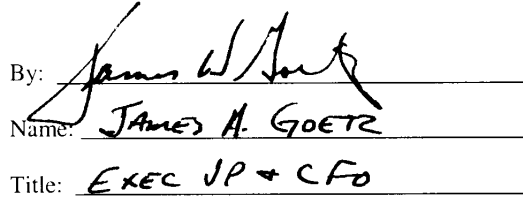 By: James W Goetz
Name: JAMES A. GOETZ
Title: EXEC VP + CFO